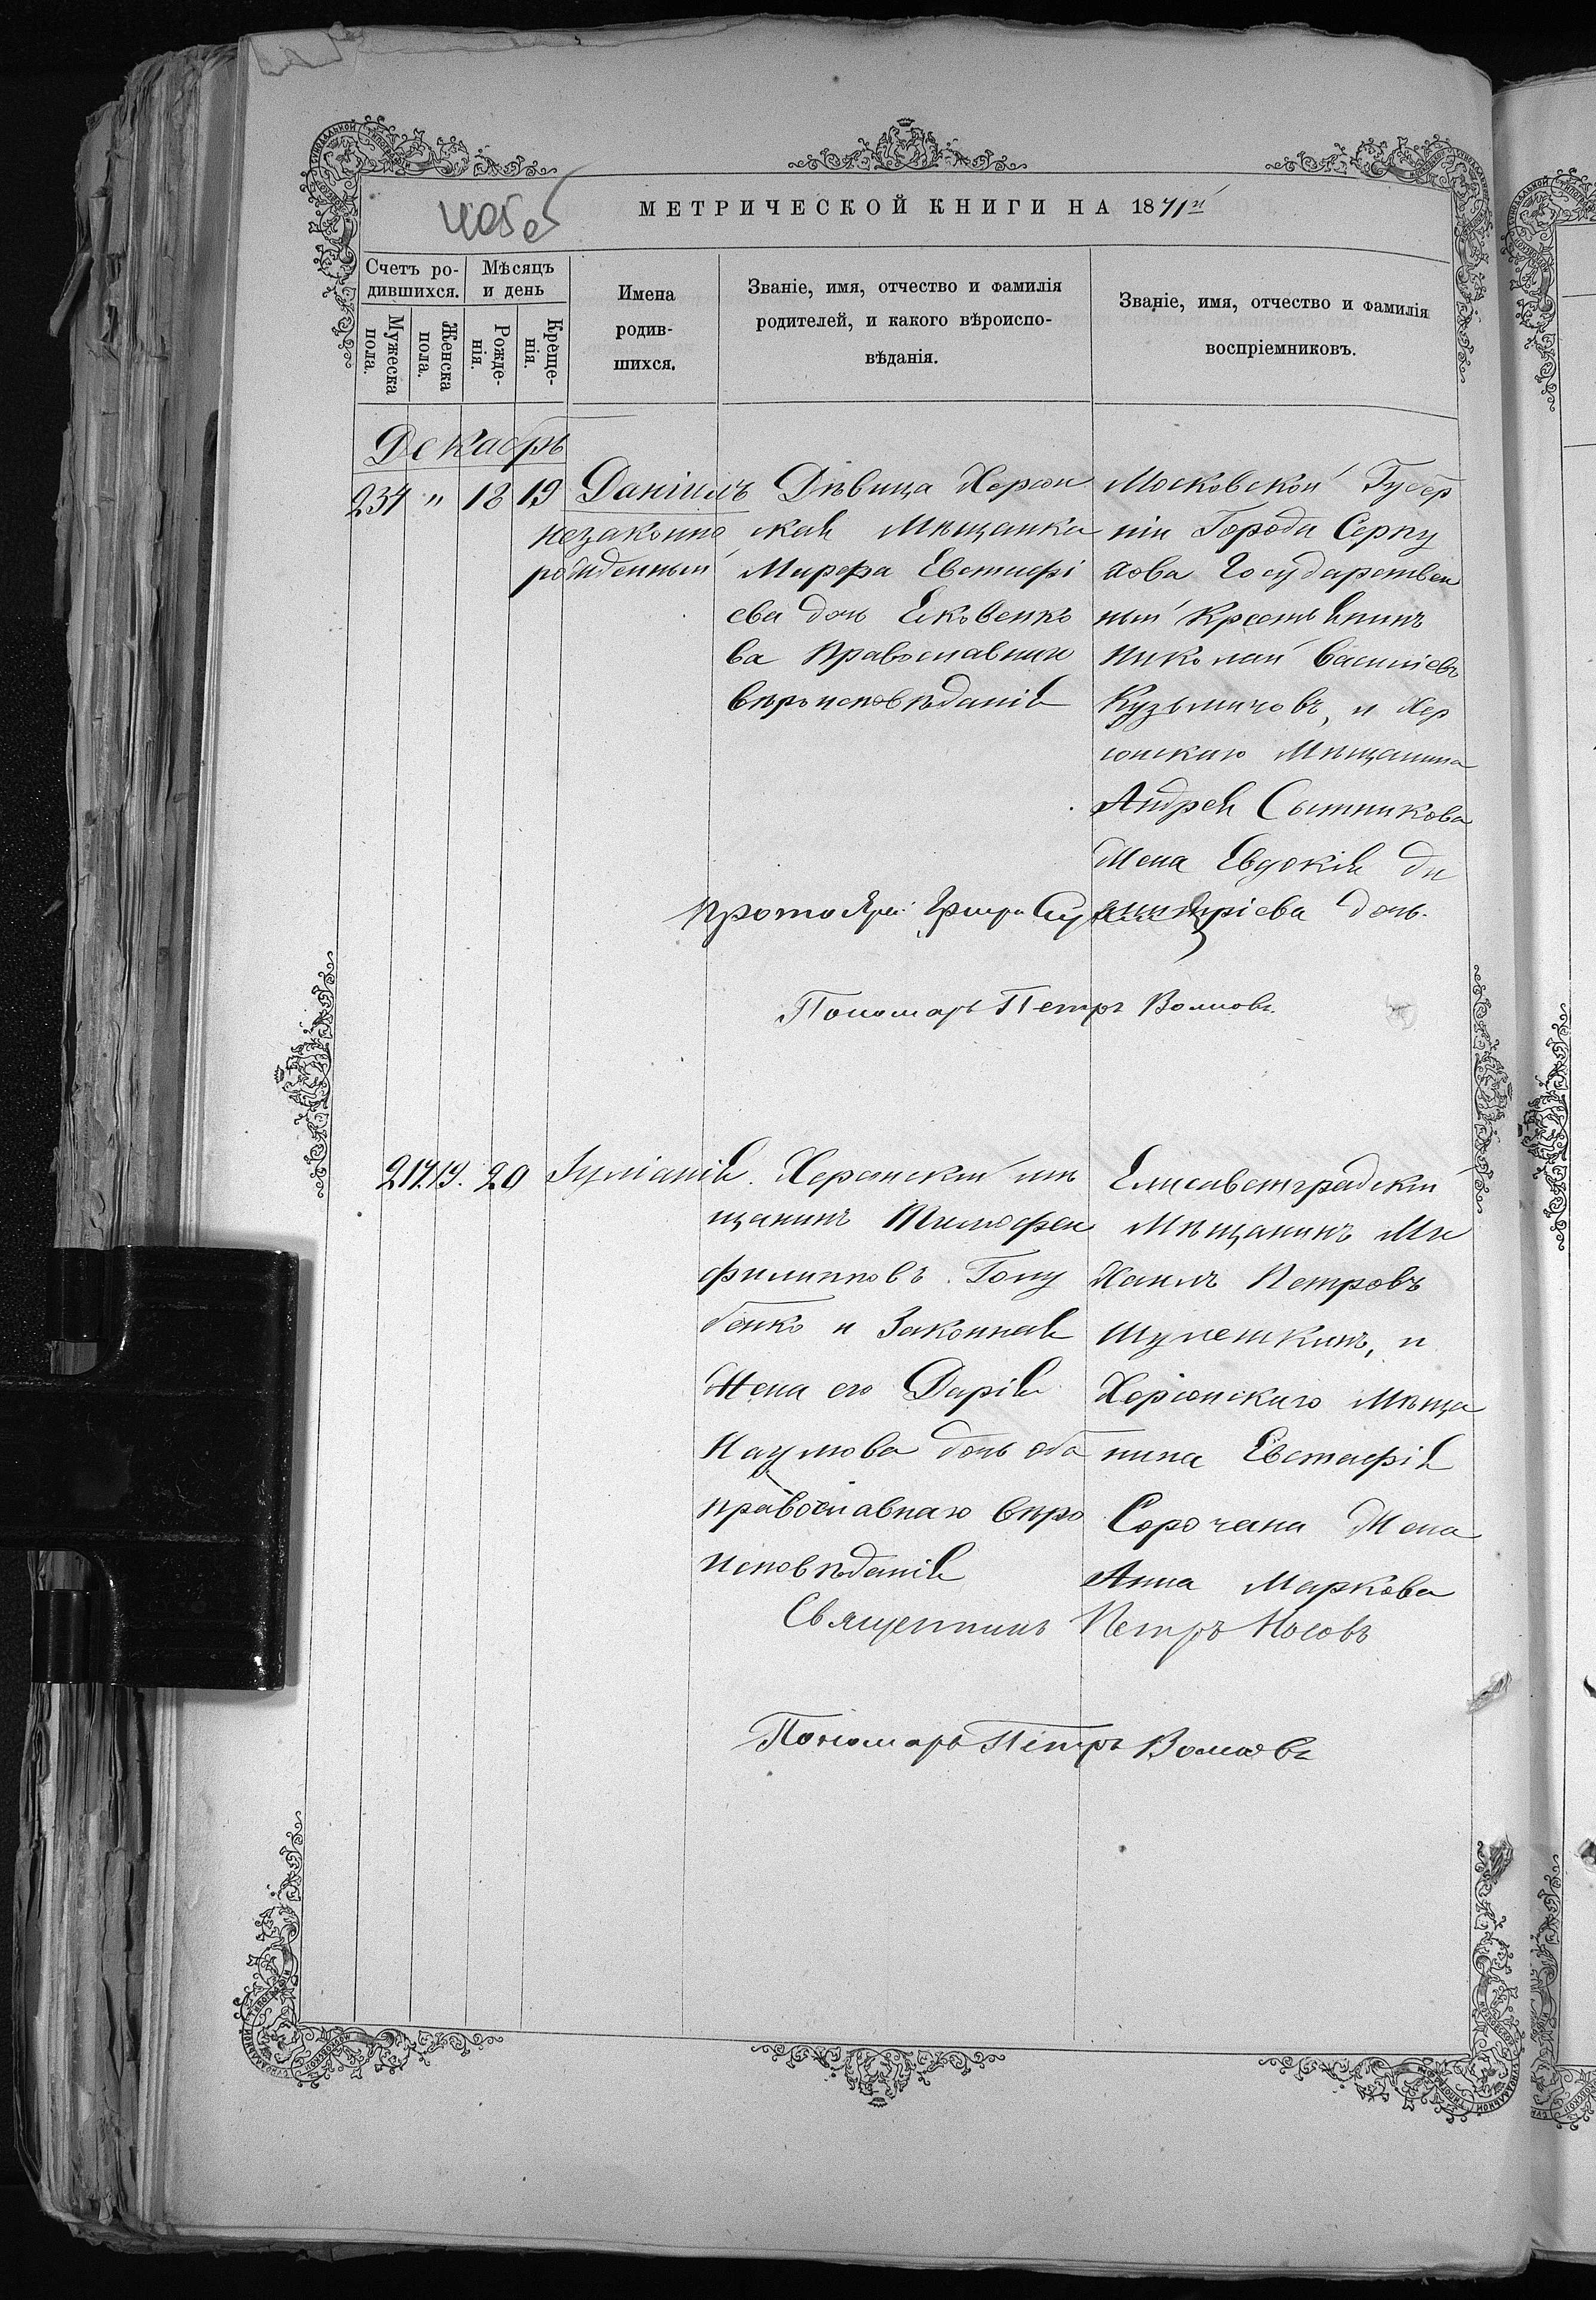 405 об
МЕТРИЧЕСКОЙ КНИГИ НА 1871й
Счетъ ро-
дившихся.
Мѣсяцъ
и день
Мужеска
пола.
Женска
пола.
Рожде-
нія.
Креще-
нія.
Имена
родив-
шихся.
Званіе, имя, отчество и фамилія
родителей, и какого вѣроиспо-
вѣданія.
Званіе, имя, отчество и фамилія
воспріемниковъ.
Декабрь
234 " 18 19
Даніилъ
незаконно
рожденный
Дѣвица Херсон
ская Мѣщанка
Марфа Евстафі
ева дочь Яковенко
ва Православнаго
вѣроисповѣданія
Московской Губер
ніи Города Серпу
хова Государствен
ный Крестьянинъ
Николай Василіевъ
Кузьмичовъ, и Хер
сонскаго Мѣщанина
Андрея Сытникова
Жена Евдокія Ди
митріева дочь.
Протоіерей
Пономарь Петръ Волковъ.
217. 19. 20
Іуліанія.
Херсонскій мѣ
щанинъ Тимофей
Филипповъ Голу
бенко и Законная
Жена его Дарія
Наумова дочь оба
православнаго вѣро
исповѣданія
Елисаветградскій
Мѣщанинъ Ми
хаилъ Петровъ
Шулешкинъ, и
Херсонскаго Мѣща
нина Евстафія
Сорочана Жена
Анна Маркова
Священникъ Петръ Носовъ
Пономарь Петръ Волковъ